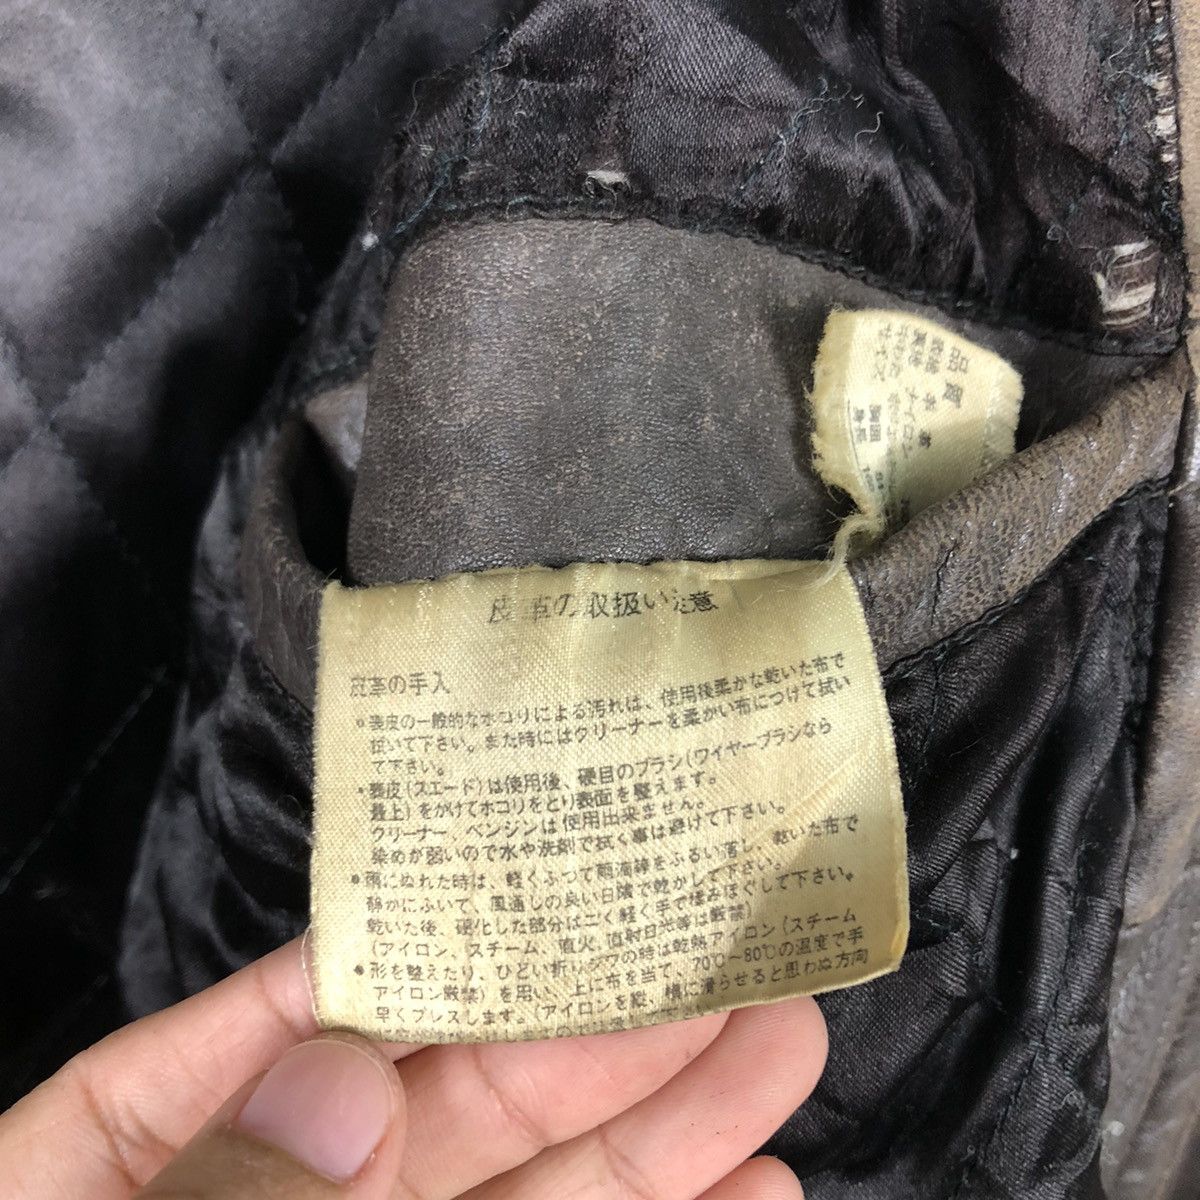 皮革の取扱い注意
皮革の手入
●表皮の一般的なホコリによる汚れは、使用後柔かな乾いた布で
拭いて下さい。また時にはクリーナーを柔かい布につけて拭い
て下さい。
●裏皮(スエード)は使用後、硬目のブラシ(ワイヤーブラシなら
最上)をかけてホコリをとり表面を整えます。
クリーナー、ベンジンは使用出来ません。
染めが弱いので水や洗剤で拭く事は避けて下さい。
●雨にぬれた時は、軽くふつて雨滴をふるい落し、乾いた布で
静かにふいて、風通しの良い日陰で乾かして下さい。
乾いた後、硬化した部分はごく軽く手で揉みほぐして下さい。
(アイロン、スチーム、直火、直射日光等は厳禁)
●形を整えたり、ひどい折りジワの時は乾熱アイロン(スチーム
アイロン厳禁)を用い、上に布を当て、70℃〜80℃の温度で手
早くプレスします。(アイロンを縦、横に滑らせると思わぬ方向
品質
ナイロン
胸囲
身長